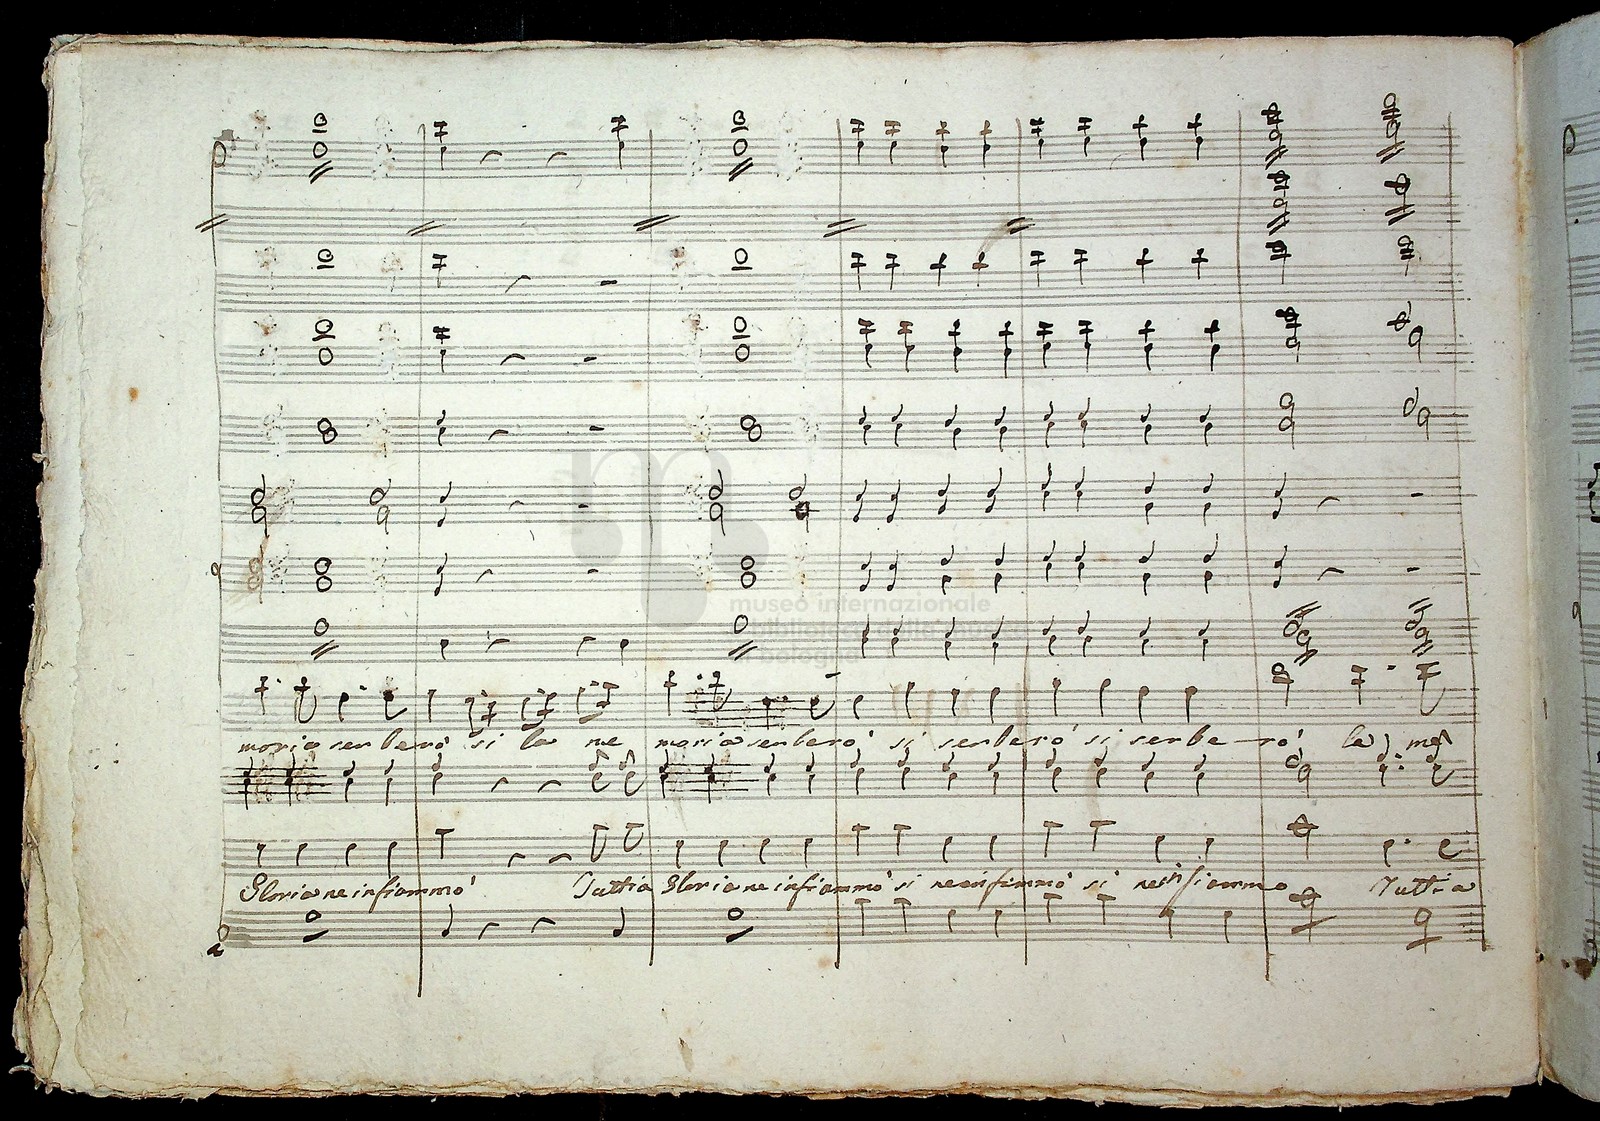 museo internazionale
e biblioteca della musica
di bologna
moria serberò si la me moria serberò si serberò si serbe-rò la me
Gloria ne infiammò Tutti a Gloria ne infiammò si ne infiammò si ne infiammo Tutti a